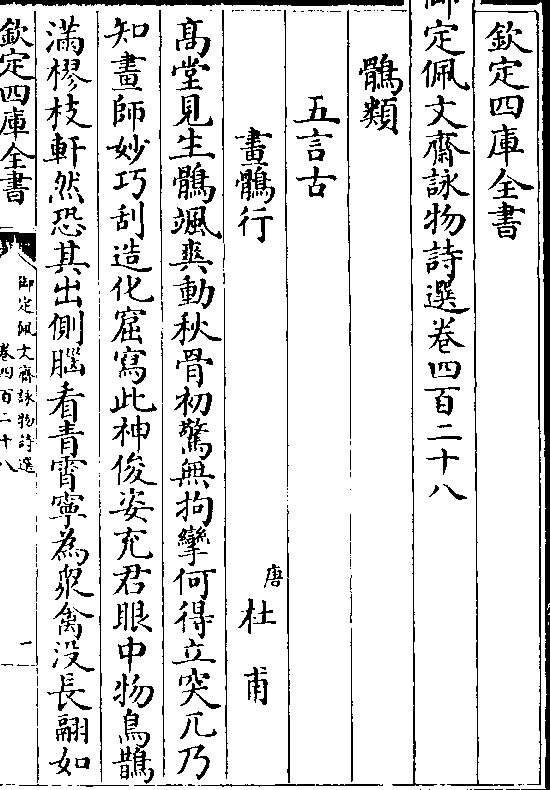 欽定四庫全書
御定佩文齋詠物詩選卷四百二十八
鶻類
五言古
畫鶻行
唐
杜甫
髙堂見生鶻颯爽動秋骨初驚無拘攣何得立突兀乃
知畫師妙巧刮造化窟寫此神俊姿充君眼中物烏鵲
滿樛枝軒然恐其出側腦看青霄寧為衆禽没長翮如
欽定四庫全書
御定佩文齋詠物詩選
卷四百二十八
一